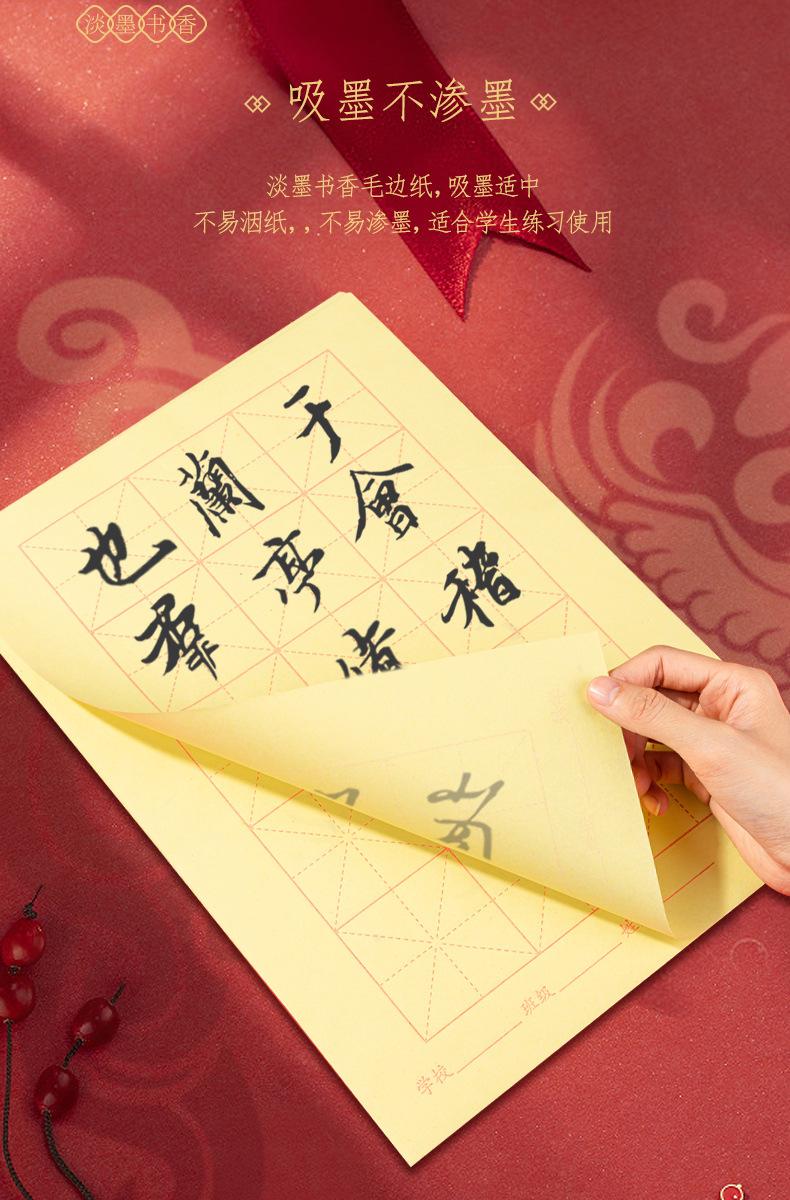 淡墨书香
吸墨不渗墨
淡墨书香毛边纸，吸墨适中
不易洇纸，，不易渗墨，适合学生练习使用
于會稽
蘭亭
也羣
学校 班级 姓